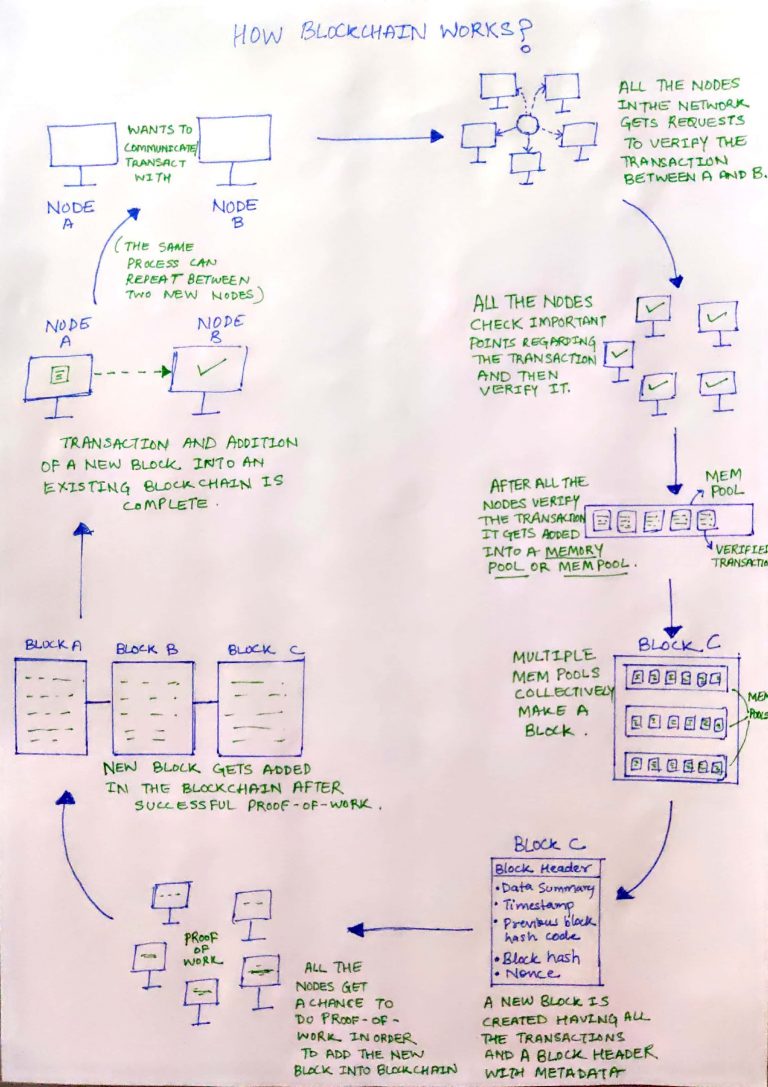 HOW BLOCKCHAIN WORKS?
WANTS TO
COMMUNICATE/
TRANSACT
WITH
NODE
A
NODE
B
ALL THE NODES
IN THE NETWORK
GETS REQUESTS
TO VERIFY THE
TRANSACTION
BETWEEN A AND B.
ALL THE NODES
CHECK IMPORTANT
POINTS REGARDING
THE TRANSACTION
AND THEN
VERIFY IT.
AFTER ALL THE
NODES VERIFY
THE TRANSACTION
IT GETS ADDED
INTO A MEMORY
POOL OR MEMPOOL.
MEM
POOL
VERIFIED
TRANSACTIO
MULTIPLE
MEM POOLS
COLLECTIVELY
MAKE A
BLOCK.
BLOCK C
MEM
POOLS
BLOCK C
Block Header
• Data Summary
• Timestamp
• Previous block
hash code
• Block hash
• Nonce
A NEW BLOCK IS
CREATED HAVING ALL
THE TRANSACTIONS
AND A BLOCK HEADER
WITH METADATA
PROOF
OF
WORK
ALL THE
NODES GET
A CHANCE TO
DO PROOF-OF-
WORK IN ORDER
TO ADD THE NEW
BLOCK INTO BLOCKCHAIN
BLOCK A
BLOCK B
BLOCK C
NEW BLOCK GETS ADDED
IN THE BLOCKCHAIN AFTER
SUCCESSFUL PROOF-OF-WORK.
NODE
A
NODE
B
TRANSACTION AND ADDITION
OF A NEW BLOCK INTO AN
EXISTING BLOCKCHAIN IS
COMPLETE.
(THE SAME
PROCESS CAN
REPEAT BETWEEN
TWO NEW NODES)